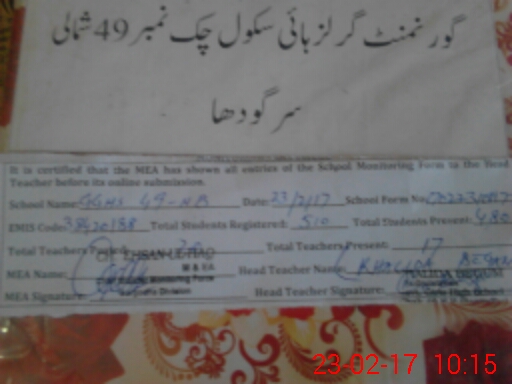 گورنمنٹ گرلز ہائی سکول چک نمبر 49 شمالی
سرگودھا
It is certified that the MEA has shown all entries of the School Monitoring Form to the Head
Teacher before its online submission.
School Name: GGHS 49-NB Date: 23/2/17 School Form No:
EMIS Code: 38420188 Total Students Registered: 510 Total Students Present: 480
Total Teachers Total Teachers Present: 17
MEA Name: Head Teacher Name: KHALIDA BEGUM
MEA Signature: Head Teacher Signature:
23-02-17 10:15